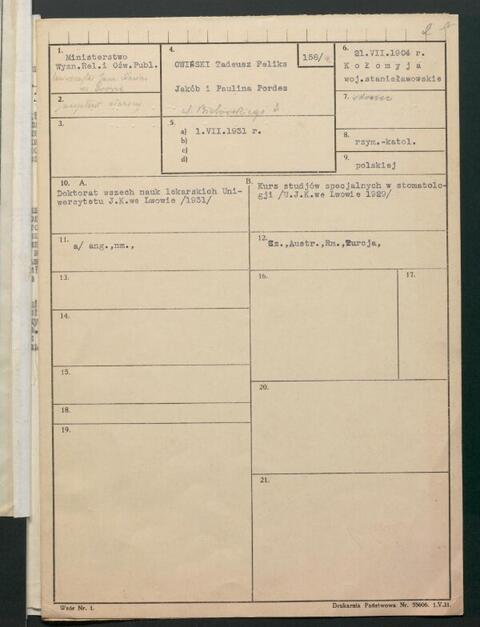 1.
Ministerstwo
Wyzn.Rel.i Ośw.Publ.
2.
3.
4.
OWIŃSKI Tadeusz Feliks
Jakób i Paulina Pordes
158/
5.
a) 1.VII.1931 r.
b)
c)
d)
6.
21.VII.1904 r.
Kołomyja
woj.stanisławowskie
7.
8.
rzym.-katol.
9.
polskiej
10. A.
Doktorat wszech nauk lekarskich Uni-
wersytetu J.K.we Lwowie /1931/
B.
Kurs studjów specjalnych w stomatolo-
gji /U.J.K.we Lwowie 1929/
11.
a/ ang.,nm.,
12.
Cz.,Austr.,Rm.,Turcja,
13.
14.
15.
16.
17.
18.
19.
20.
21.
Wzór Nr. 1.
Drukarnia Państwowa Nr. 55606. 1.V.31.